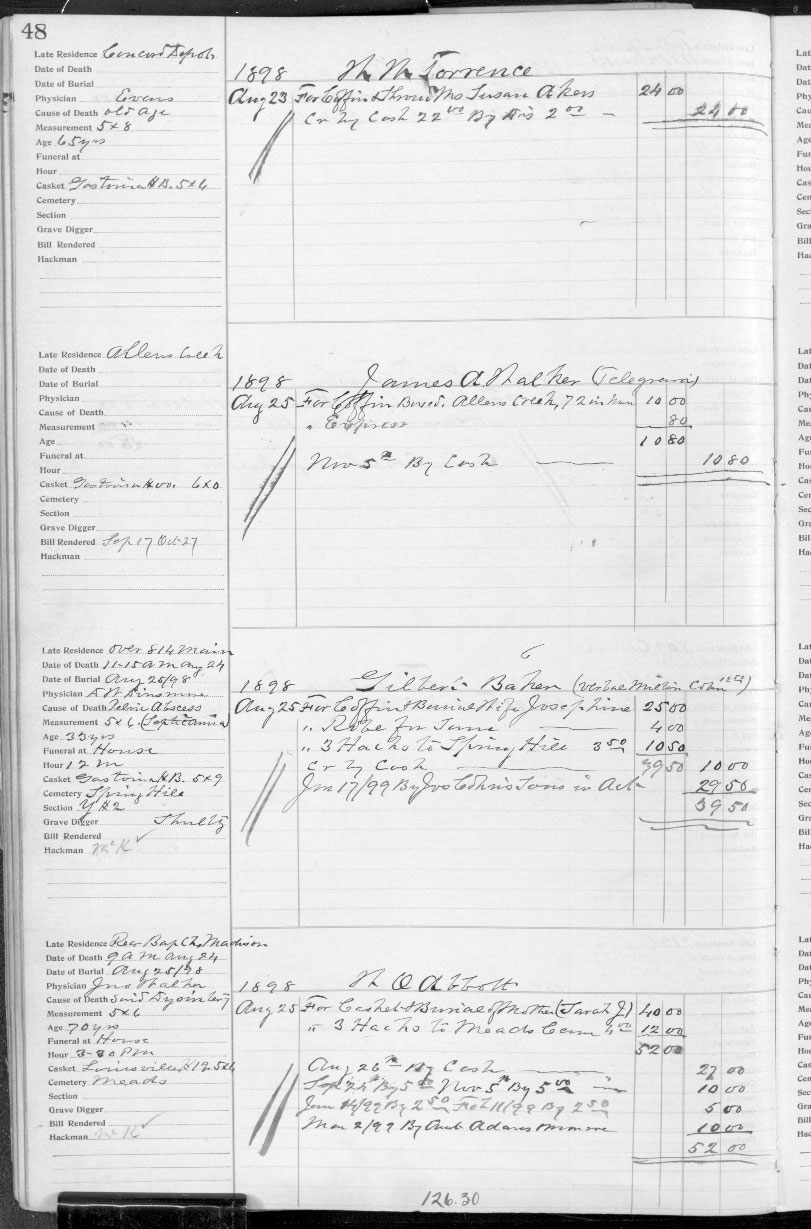 48
Late Residence Concord Depot
Date of Death
Date of Burial
Physician Evans
Cause of Death old age
Measurement 5x8
Age 65 yrs
Funeral at
Hour
Casket Gastonia H B. 5x6
Cemetery
Section
Grave Digger
Bill Rendered
Hackman
1898 Torrence
Aug 23 For Coffin & Shroud Mrs Susan Akers 24 00
Cr By Cash 22 00 By Dis 2 00 24 00
Late Residence Allens Creek
Date of Death
Date of Burial
Physician
Cause of Death
Measurement
Age
Funeral at
Hour
Casket Gastonia 6x0
Cemetery
Section
Grave Digger
Bill Rendered Sep 17 Oct 27
Hackman
1898 James A. Walker (Telegram)
Aug 25 For Coffin Boxed. Allens Creek, 72 in 10 00
" Express 80
10 80
Nov 5th By Cash 10 80
Late Residence over 814 Main
Date of Death 11-15 am Aug 24
Date of Burial Aug 25/98
Physician
Cause of Death Pelvic Abscess
Measurement 5x6. (Septicamia)
Age 33 yrs
Funeral at House
Hour 12 m
Casket Gastonia H B. 5x9
Cemetery Spring Hill
Section Y #2
Grave Digger Shultz
Bill Rendered
Hackman McK
1898 Gilbert Baker
Aug 25 For Coffin & Burial Wife Josephine 25 00
" Robe for Same 4 00
" 3 Hacks to Spring Hill 3 50 10 50
Cr by Cash 39 50 10 00
Jan 17/99 By Jos Cohn's Sons in Act 29 50
39 50
Late Residence Rear Bap Ch, Madison
Date of Death 9 A M Aug 24
Date of Burial Aug 25/98
Physician Jno Walker
Cause of Death Dysintery
Measurement 5x6
Age 70 yrs
Funeral at House
Hour 3-30 PM
Casket Louisville 19. 5x6
Cemetery Meads
Section
Grave Digger
Bill Rendered
Hackman McK
1898 W O Abbott
Aug 25 For Casket & Burial of Mother (Sarah J) 40 00
" 3 Hacks to Meads Cem 4 00 12 00
52 00
Aug 26th By Cash 27 00
Sep 24th By 5 00 Nov 5th By 5 00 10 00
Jan 14/99 By 2 50 Feb 11/99 By 2 50 5 00
Mar 2/99 By Adams 10 00
52 00
126.30